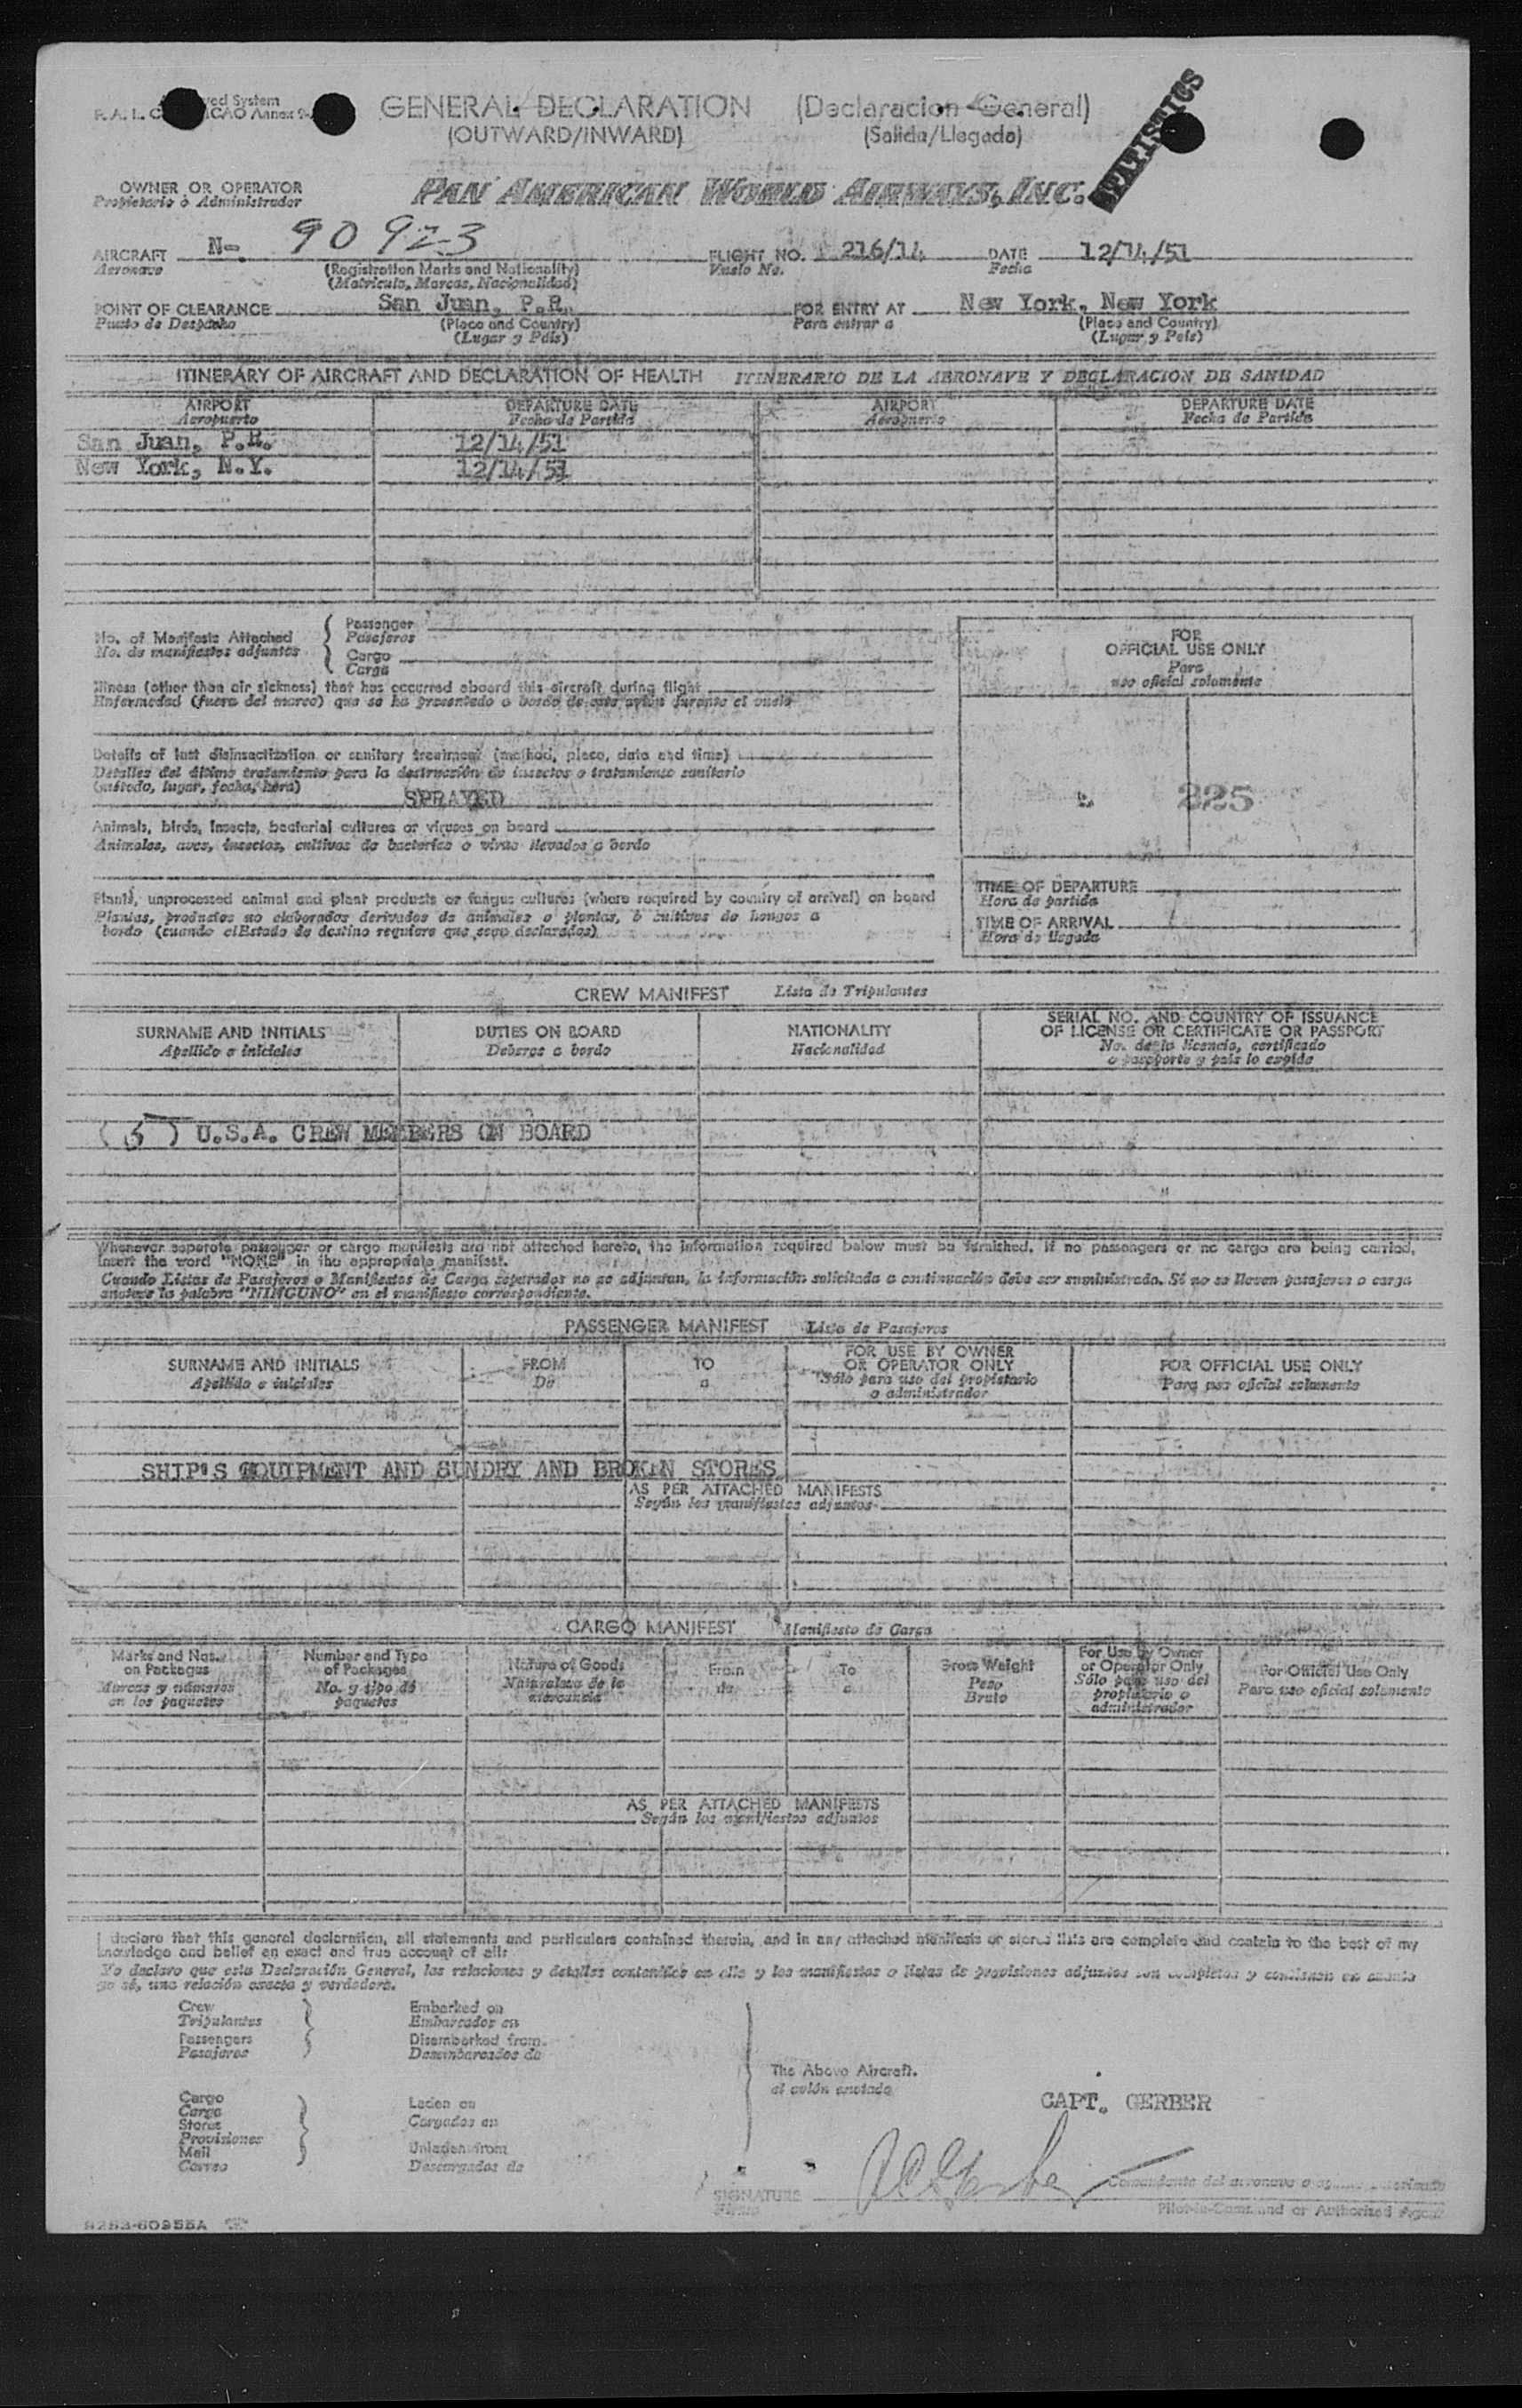 GENERAL DECLARATION (Declaracion General)
(OUTWARD/INWARD) (Salida/Llegada)
OWNER OR OPERATOR
Propietario o Administrador
PAN AMERICAN WORLD AIRWAYS, INC.
STATISTICS
AIRCRAFT N-. 90923 FLIGHT NO. 216/14 DATE 12/14/51
Aeronave (Registration Marks and Nationality) Vuelo No. Fecha
(Matricula, Marcas, Nacionalidad)
POINT OF CLEARANCE San Juan, P.R. FOR ENTRY AT New York, New York
Punto de Despacho (Place and Country) Para entrar a (Place and Country)
(Lugar y País) (Lugar y País)
ITINERARY OF AIRCRAFT AND DECLARATION OF HEALTH ITINERARIO DE LA AERONAVE Y DECLARACION DE SANIDAD
AIRPORT DEPARTURE DATE AIRPORT DEPARTURE DATE
Aeropuerto Fecha de Partida Aeropuerto Fecha de Partida
San Juan, P.R. 12/14/51
New York, N.Y. 12/14/51
No. of Manifests Attached
No. de manifiestos adjuntos
Passenger
Pasajeros
Cargo
Carga
Illness (other than air sickness) that has occurred aboard this aircraft during flight
Enfermedad (fuera del mareo) que se ha presentado a bordo de este avion durante el vuelo
Details of last disinsectization or sanitary treatment (method, place, date and time)
Detalles del último tratamiento para la destrucción de insectos o tratamiento sanitario
(método, lugar, fecha, hora)
SPRAYED
Animals, birds, insects, bacterial cultures or viruses on board
Animales, aves, insectos, cultivos de bacterias o virus llevados a bordo
Plants, unprocessed animal and plant products or fungus cultures (where required by country of arrival) on board
Plantas, productos no elaborados derivados de animales o plantas, o cultivos de hongos a
bordo (cuando el Estado de destino requiere que sean declarados)
FOR
OFFICIAL USE ONLY
Para
uso oficial solamente
225
TIME OF DEPARTURE
Hora de partida
TIME OF ARRIVAL
Hora de llegada
CREW MANIFEST Lista de Tripulantes
SURNAME AND INITIALS DUTIES ON BOARD NATIONALITY SERIAL NO. AND COUNTRY OF ISSUANCE
OF LICENSE OR CERTIFICATE OR PASSPORT
Apellido e iniciales Deberes a bordo Nacionalidad No. de la licencia, certificado
o pasaporte y país lo expide
(5) U.S.A. CREW MEMBERS ON BOARD
Whenever separate passenger or cargo manifests are not attached hereto, the information required below must be furnished. If no passengers or no cargo are being carried,
insert the word "NONE" in the appropriate manifest.
Cuando Listas de Pasajeros o Manifiestos de Carga separados no se adjuntan, la información solicitada a continuación debe ser suministrada. Si no se llevan pasajeros o carga
anotese la palabra "NINGUNO" en el manifiesto correspondiente.
PASSENGER MANIFEST Lista de Pasajeros
SURNAME AND INITIALS FROM TO FOR USE BY OWNER
OR OPERATOR ONLY FOR OFFICIAL USE ONLY
Apellido e iniciales De a Sólo para uso del propietario
o administrador Para uso oficial solamente
SHIP'S EQUIPMENT AND SUNDRY AND BROKEN STORES
AS PER ATTACHED MANIFESTS
Según los manifiestos adjuntos
CARGO MANIFEST Manifiesto de Carga
Marks and Nos.
on Packages
Marcas y números
en los paquetes
Number and Type
of Packages
No. y tipo de
paquetes
Nature of Goods
Naturaleza de la
mercancía
From
de
To
a
Gross Weight
Peso
Bruto
For Use by Owner
or Operator Only
Sólo para uso del
propietario o
administrador
For Official Use Only
Para uso oficial solamente
AS PER ATTACHED MANIFESTS
Según los manifiestos adjuntos
I declare that this general declaration, all statements and particulars contained therein, and in any attached manifests or stores lists are complete and contain to the best of my
knowledge and belief an exact and true account of all:
Yo declaro que esta Declaración General, las relaciones y detalles contenidos en ella y los manifiestos o listas de provisiones adjuntos son completos y contienen en cuanto
yo sé, una relación exacta y verdadera.
Crew
Tripulantes
Passengers
Pasajeros
Embarked on
Embarcados en
Disembarked from
Desembarcados de
Cargo
Carga
Stores
Provisiones
Mail
Correo
Laden on
Cargados en
Unladen from
Descargados de
The Above Aircraft.
el avión anotado
CAPT. GERBER
SIGNATURE
Firma
Comandante del aeronave o
Pilot-in-Command or Authorized Agent
8253-60955A